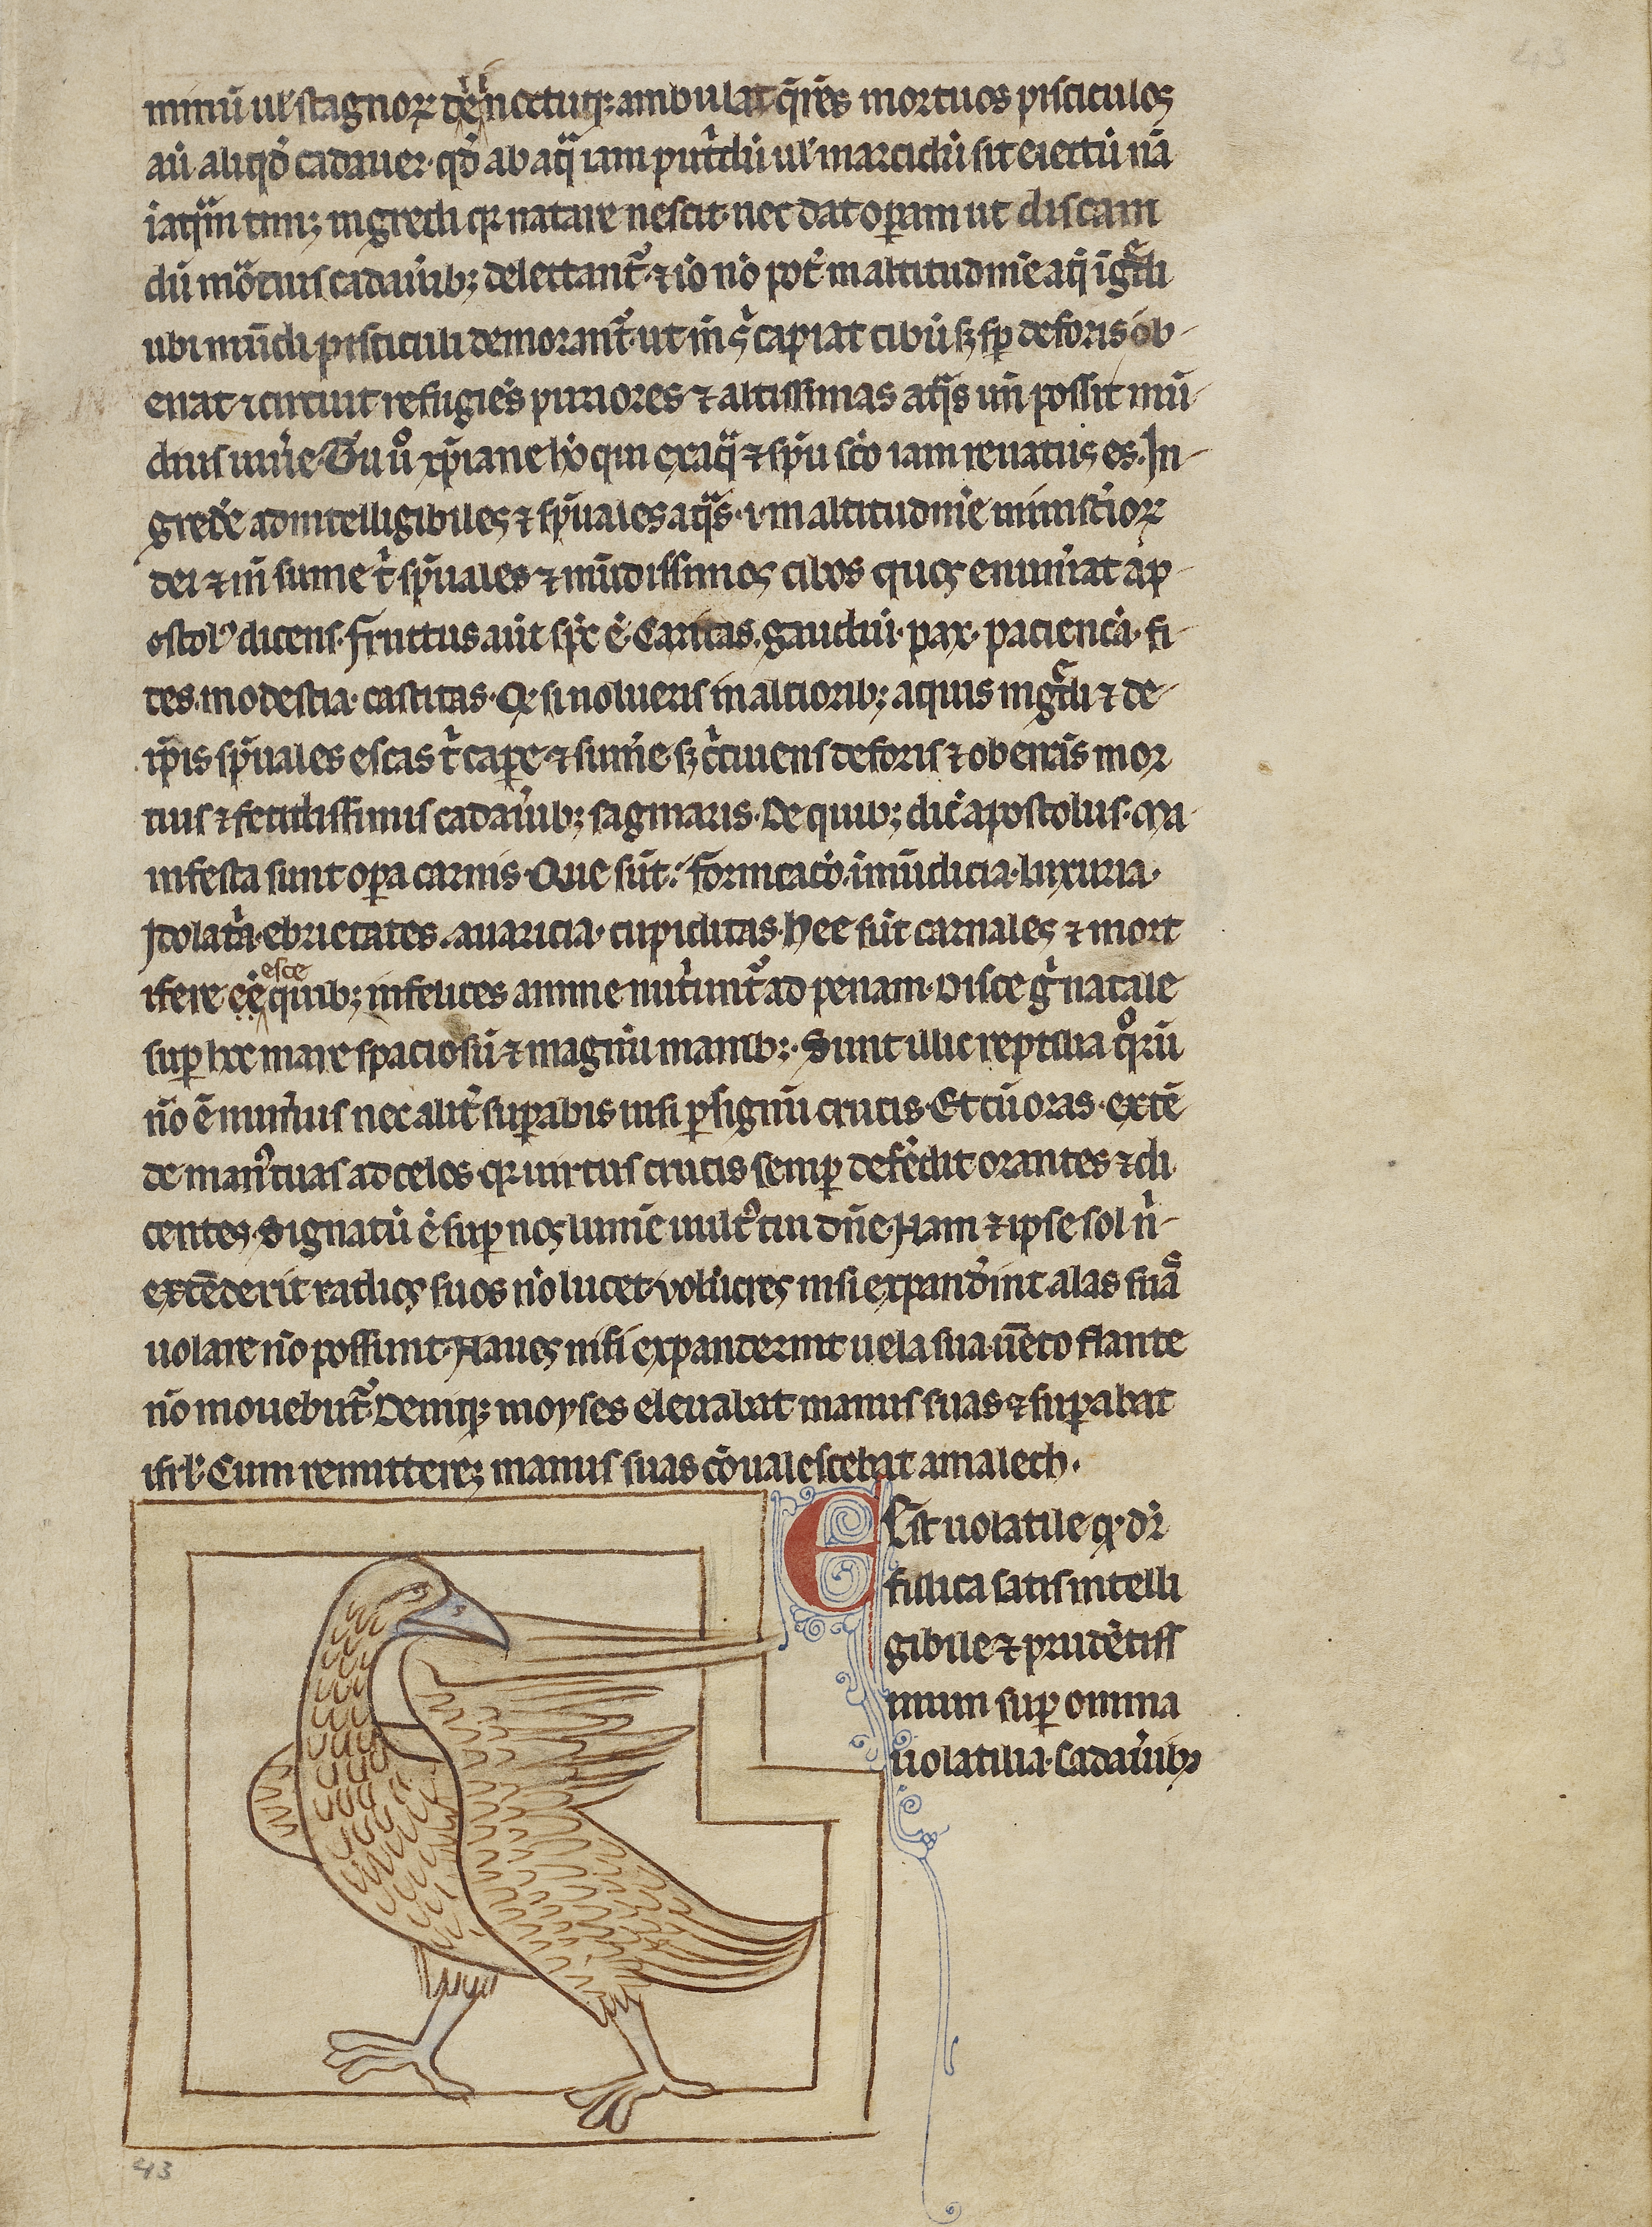 minū ul' stagnoꝝ die noctuqꝫ ambulat q̄rēs mortuos pisciculos
aū aliqd̄ cadauer. qd̄ ab aq̄ iam putⁱdū ul' marcidū sit eiectū nā
ī aq̄m timꝫ ingredi qꝛ natare nescit. nec dat oꝑam ut discam
dū moᵃtuis cadau̓ibꝫ delectant᷑. ⁊ iō nō pot̓ in altitudinē aq̄ ig̃di
ubi mūdi pisciculi demorant᷑. ut īn s̓ capiat cibū sꝫ sꝑ deforis ob-
errat ⁊ circuit refugiēs puriores ⁊ altissimas aq̄s uñ possit mū-
dus uiu̓e. Tu ů xp̄iane hō qui ex aq̄ ⁊ sp̄u sc̄o iam renatus es. In-
gred̓e ad intelligibiles ⁊ sp̄uales aq̄s. ⁊ in altitudinē misterioꝝ
dei ⁊ iñ sume tⁱ sp̄uales ⁊ mūdissimos cibos quos enum̓at ap-
ostol᷒ dicens. fructus aūt sp̄c ē. Caritas. gaudiū. pax. paciencia. fi-
des. modestia. castitas. Q̇ si nolueris in altioribꝫ aquis ing̃di ⁊ de-
ip̄is sp̄uales escas tⁱ caꝑe ⁊ sum̓e. sꝫ cⁱcuiens deforis ⁊ oberrās mor
tuis ⁊ fetidissimis cadau̓ibꝫ saginaris. De quibꝫ dic̄ apostolus. Ma-
nifesta sunt oꝑa carnis. Que sūt. fornicacō. īmūdicia. luxuria.
Idolat̓a. ebrietates. auaricia. cupiditas. hee sūt carnales ⁊ mort
esce
ifere ēē quibꝫ infelices anime nut̓unt᷑ ad penam. Disce gͥ natare
suꝑ hoc mare spaciosū ⁊ magnū manibꝫ. Sunt illic reptilia q̊rū
nō ē num̓us nec alit̓ suꝑabis nisi ꝑ signū crucis. Et cū oras. extē
de man᷒ tuas ad celos. qꝛ uirtus crucis semꝑ defēdit orantes ⁊ di
centes. Signatū ē suꝑ nos lumē uult᷒ tui dn̄e. Nam ⁊ ipse sol nⁱ-
extēderit radios suos nō lucet. volucres nisi expand̓int alas suā
uolare nō possunt. Naues nisi expanderint uela sua uēto flante
nō mouebūt᷑. Deniqꝫ moyses eleuabat manus suas ⁊ suꝑabat
isrl'. Cum remitteret manus suas cōualescebat amalech.
Est uolatile q̇ dr̄
fullica satis intelli
gibile ⁊ prudētiss
imum suꝑ omnia
uolatilia. Cadau̓ibꝫ
43